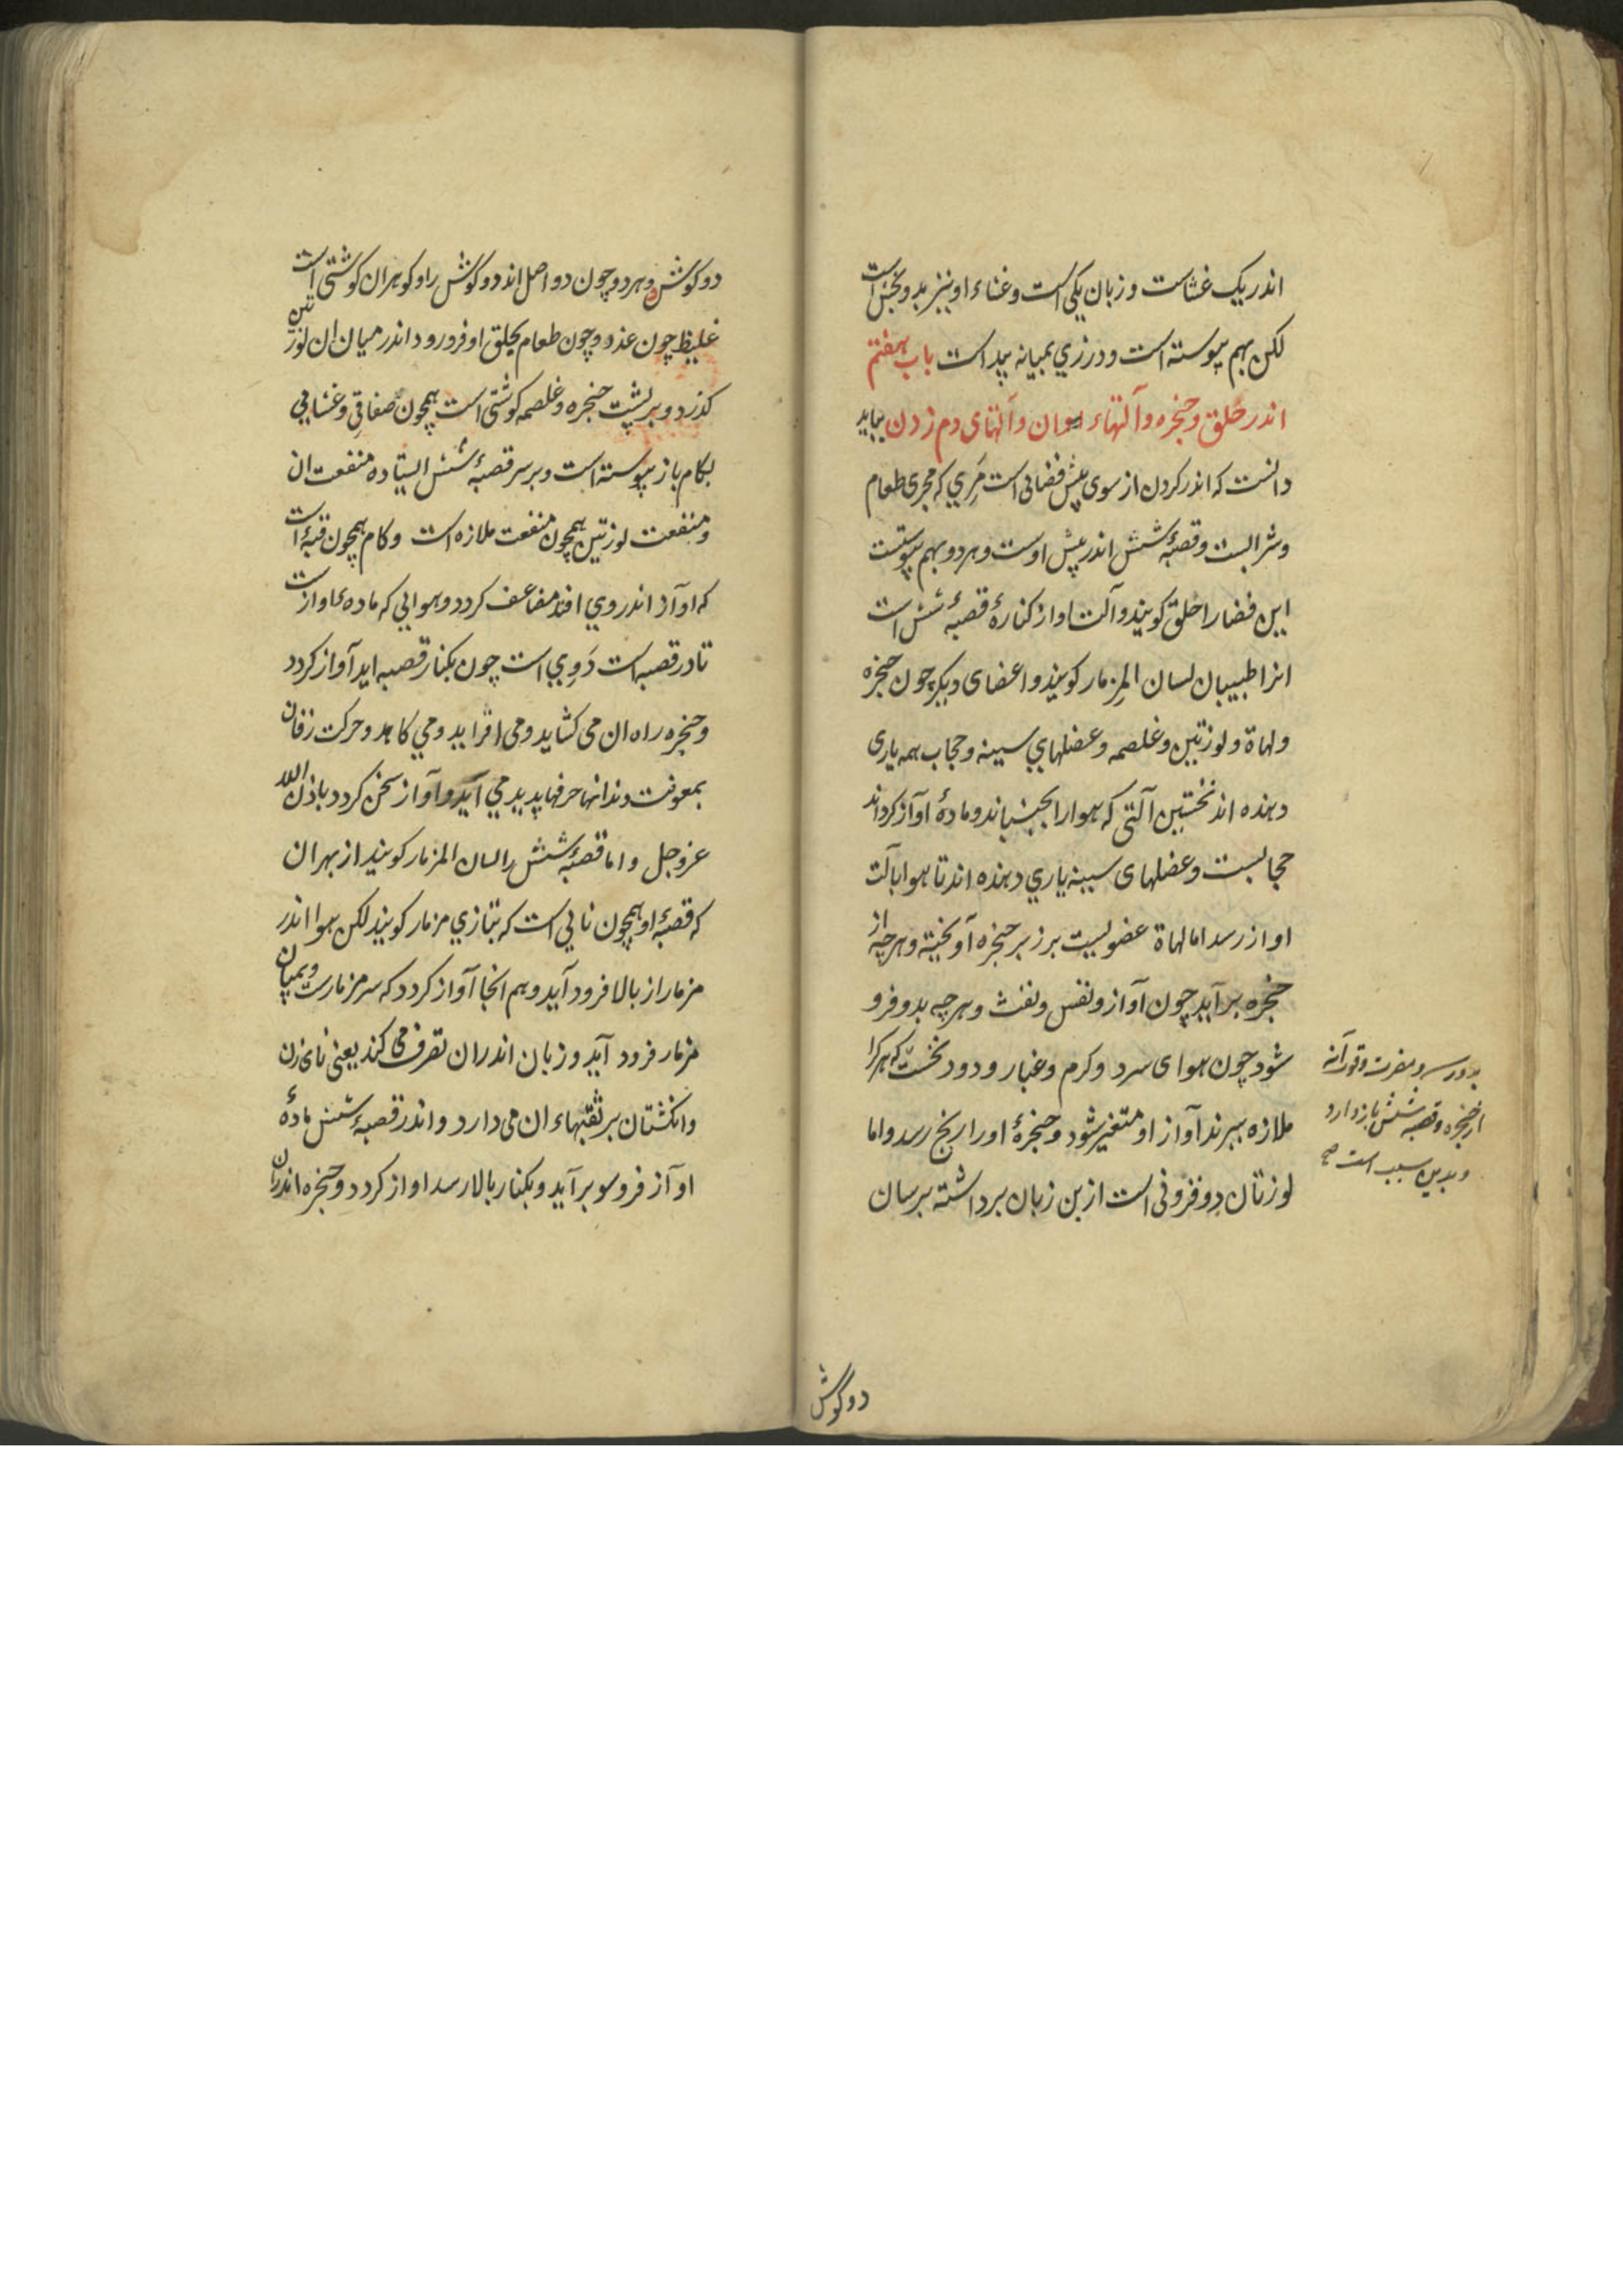 اندر یک غشاست و زبان یکی است و غشاء او نیز بدو بخش است
لکن بهم پیوسته است و درزي بمیانه پیداست باب هفتم
اندر حلق و حنجره و آلتهاء اوان و آلتهای دم زدن بباید
دانست که اندر کردن از سوی پیش فضائی است مَرِي که مجری طعام
و شرابست و قصبۀ شش اندر پیش اوست و هر دو بهم پیوستست
این فضا را حلق کویند و آلت اواز کنارۀ قصبۀ شش است
انرا طبیبان لسان المِزمار کویند و اعضای دیکر چون حنجره
و لهاة و لوزتین و غلصمه و عضلهايِ سینه و حجاب همه یاری
دهنده اند نخستین آلتی که هوا را بجنباند و مادۀ اوآز کرداند
حجابست و عضلهای سینه یاري دهنده اند تا هوا بآلت
اواز رسد اما لهاة عضویست بر زبر حنجره آویخته و هر چه از
حنجره بر آید چون آواز و نفس و نفث و هر چه بدو فرو
شود چون هوای سرد و کرم و غبار و دود نخست که هر کرا
ملازه ببرند آواز او متغیر شود و حنجرۀ او را رنج رسد و اما
لوزتان دو فزونی است از بن زبان برداشته برسان
بدو رسد و مضرت و قوت آنه
از حنجره و قصبه شش باز دارد
و بدین سبب است صح
دو گوش
دو کوش و هر دو چون دو اصل اند دو کوش را و کوهر ان کوشتی است
غلیظ چون غدو و چون طعام بحلق او فرو رود اندر میان ان لوزتین
کذرد و بر پشت حنجره و غلصمه کوشتی است همچون صفاقي و غشایي
بکام باز پیوسته است و بر سر قصبۀ شش ایستاده منفعت ان
و منفعت لوزتین همچون منفعت ملازه است و کام همچون قبۀ است
که اوآز اندر وي افتد مضاعف کردد و هوایي که ماده ء اوازست
تا در قصبه است دَوِيي است چون بکنار قصبه اید آواز کردد
و حنجره راه ان می کشاید و می افزاید و مي کاهد و حرکت زفان
بمعونت دندانها حرفها پدید مي آید و آواز سخن کردد باذن الله
عز و جل و اما قصبۀ شش را لسان المزمار کویند از بهر ان
که قصبۀ او همچون نایي است که بتازي مزمار کویند لکن هوا اندر
مزمار از بالا فرود آید و هم انجا آواز کردد که سر مزمارست و بمیان
مزمار فرود آید و زبان اندران تصرف می کند یعنی نای زن
و انکشتان بر ثقبهاء ان می دارد و اندر قصبۀ شش مادۀ
اوآز فروسو برآید و بکنار بالا رسد اواز کردد و حنجره اندران